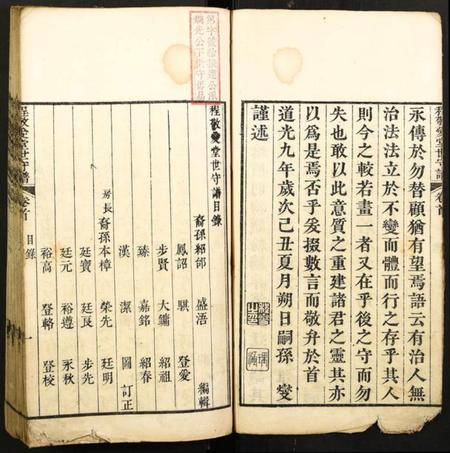 永傳於勿替顧猶有望焉語云有治人無
治法法立於不變而體而行之存乎其人
則今之較若畫一者又在乎後之守而勿
失也敢以此意質之重建諸君之靈其亦
以為是焉否乎爰掇數言而敬弁於首
道光九年歲次己丑夏月朔日嗣孫 燮
謹述
程敬愛堂世守譜 卷首
程敬愛堂世守譜目錄
裔孫紹邰 盛活 編輯
鳳詔 騏 登愛
步賢 大鏞 紹祖
臻 嘉銘 紹春
漢 潔 圖 訂正
房長裔孫本樟 榮先 廷明
廷寶 廷良 步先
廷元 裕遵 永秋
裕高 登輅 登校
程敬愛堂世守譜 卷首 目錄 一